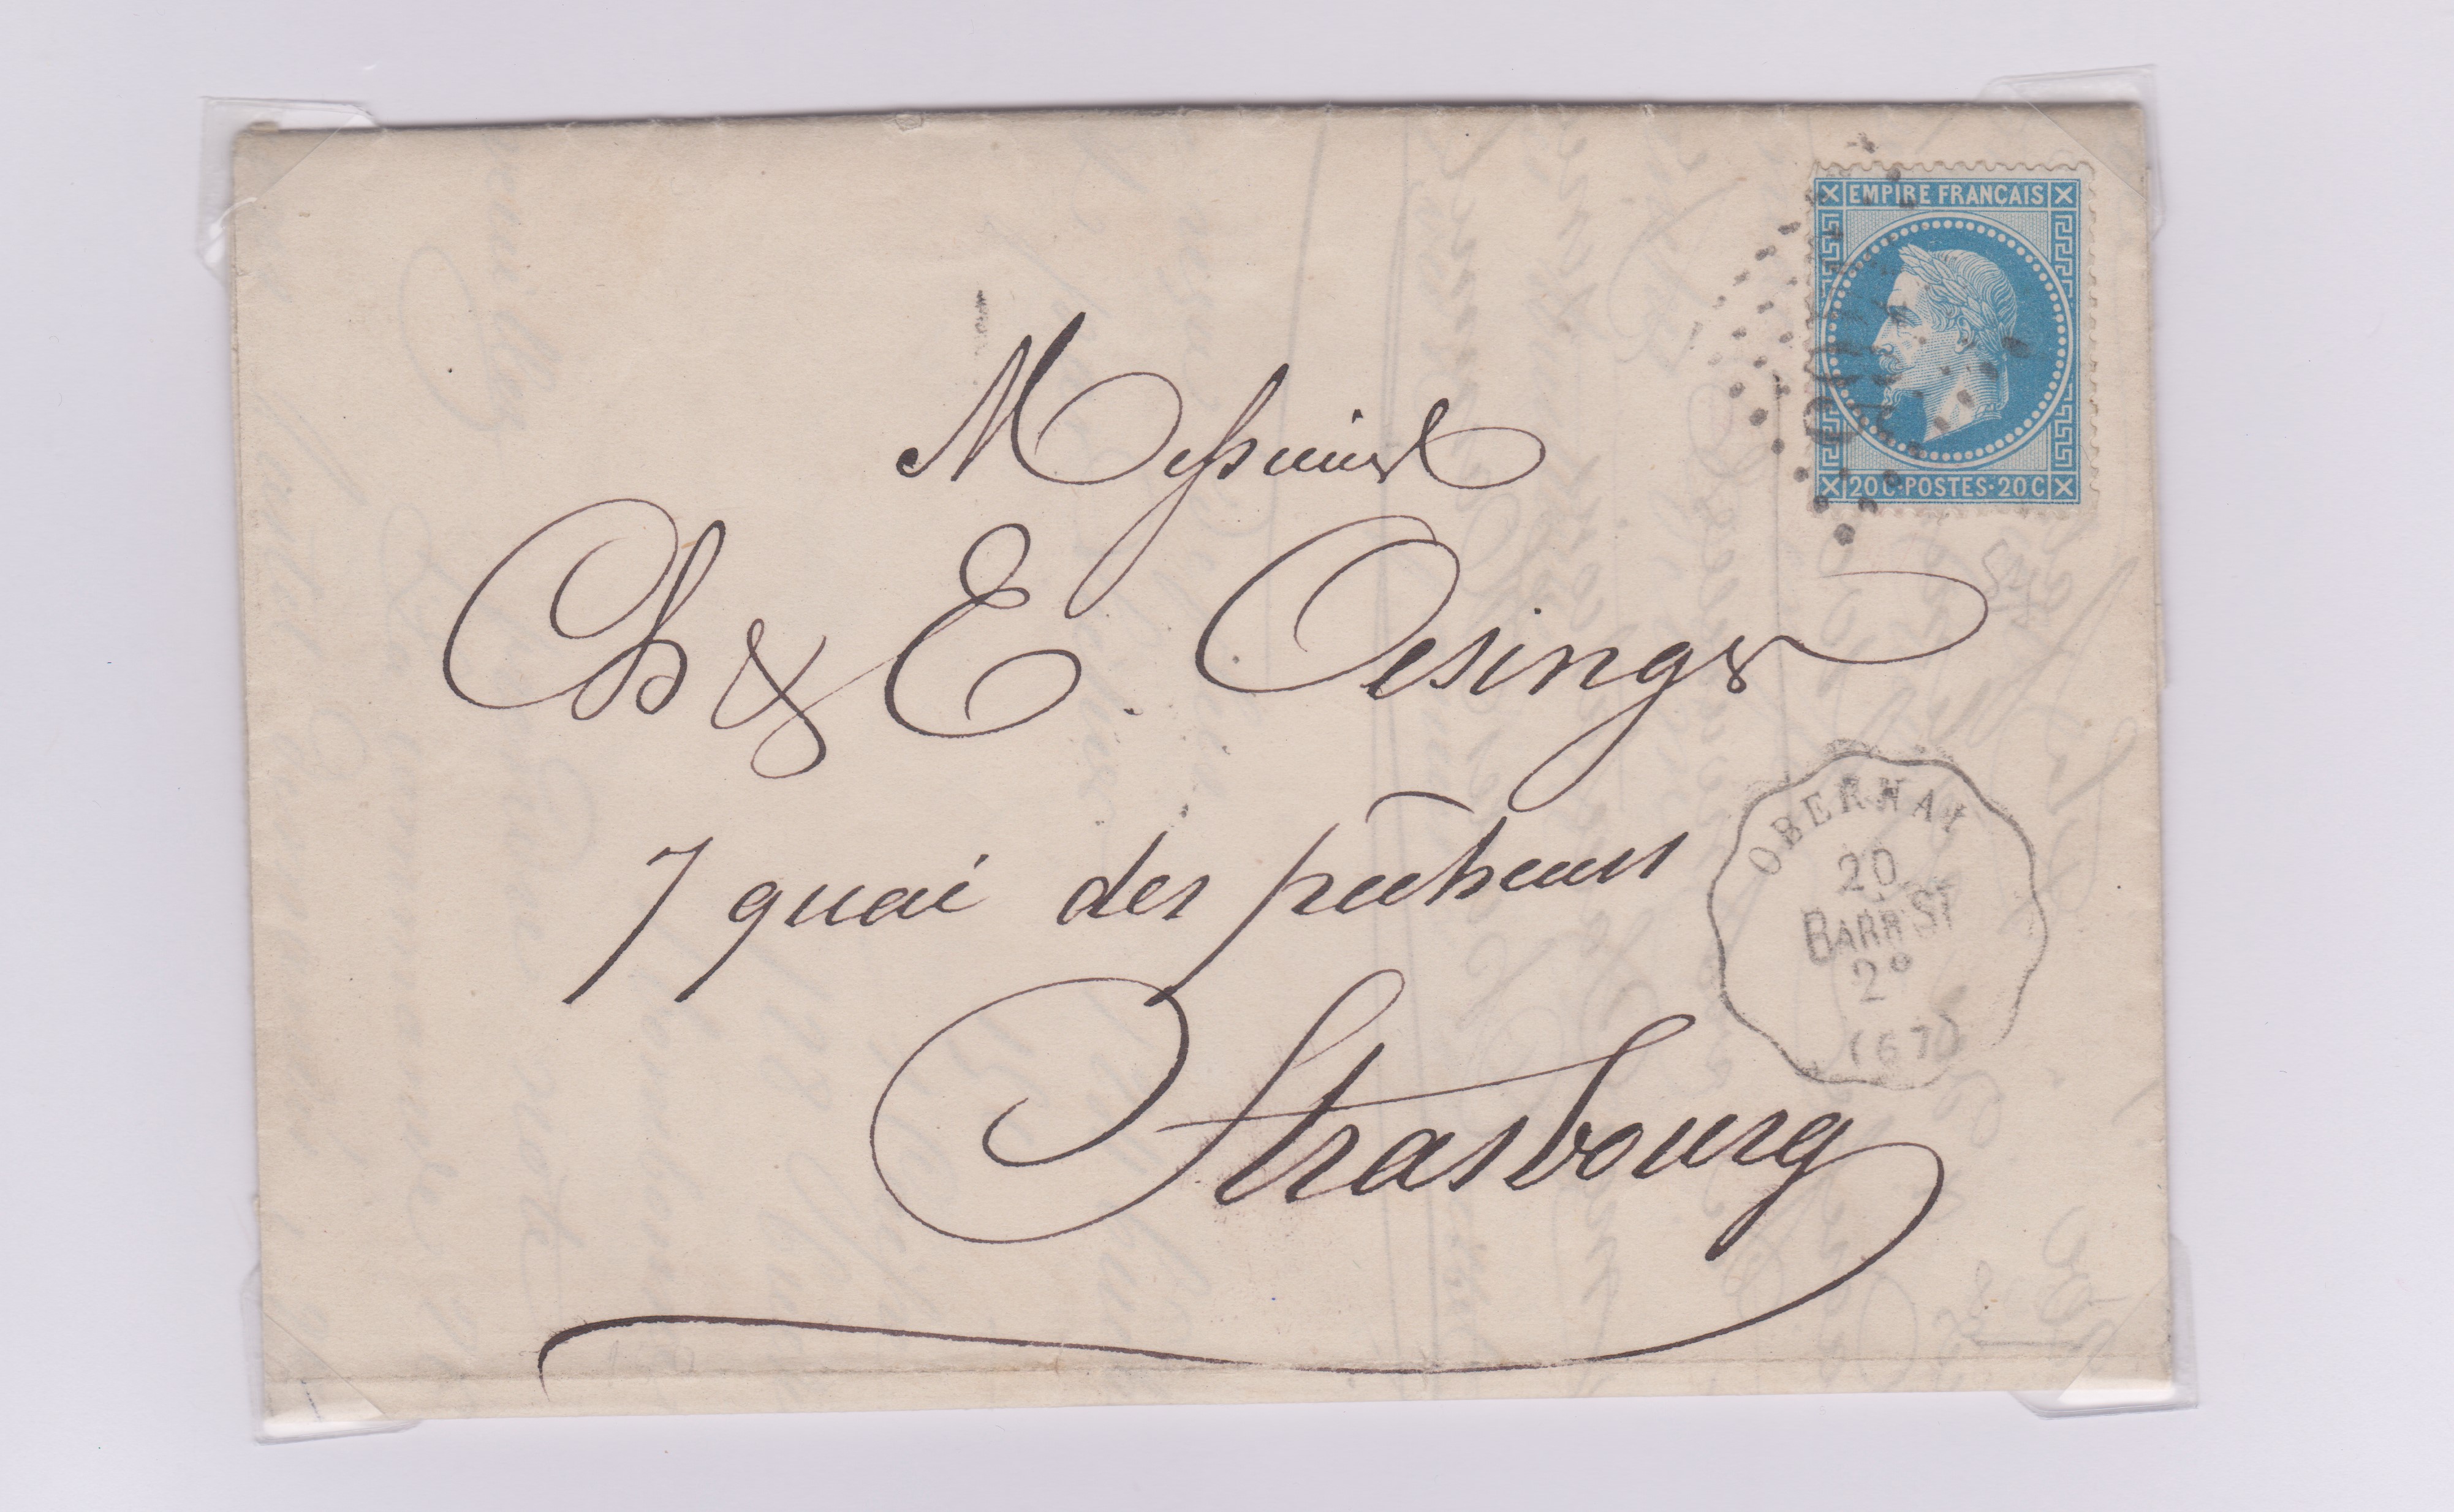 EMPIRE FRANCAIS
20 C·POSTES·20 C
Messieurs
Ch & E. Oesinger
7 quai des pêcheurs
Strasbourg
OBERNAY
20
BARR ST
2°
(67)